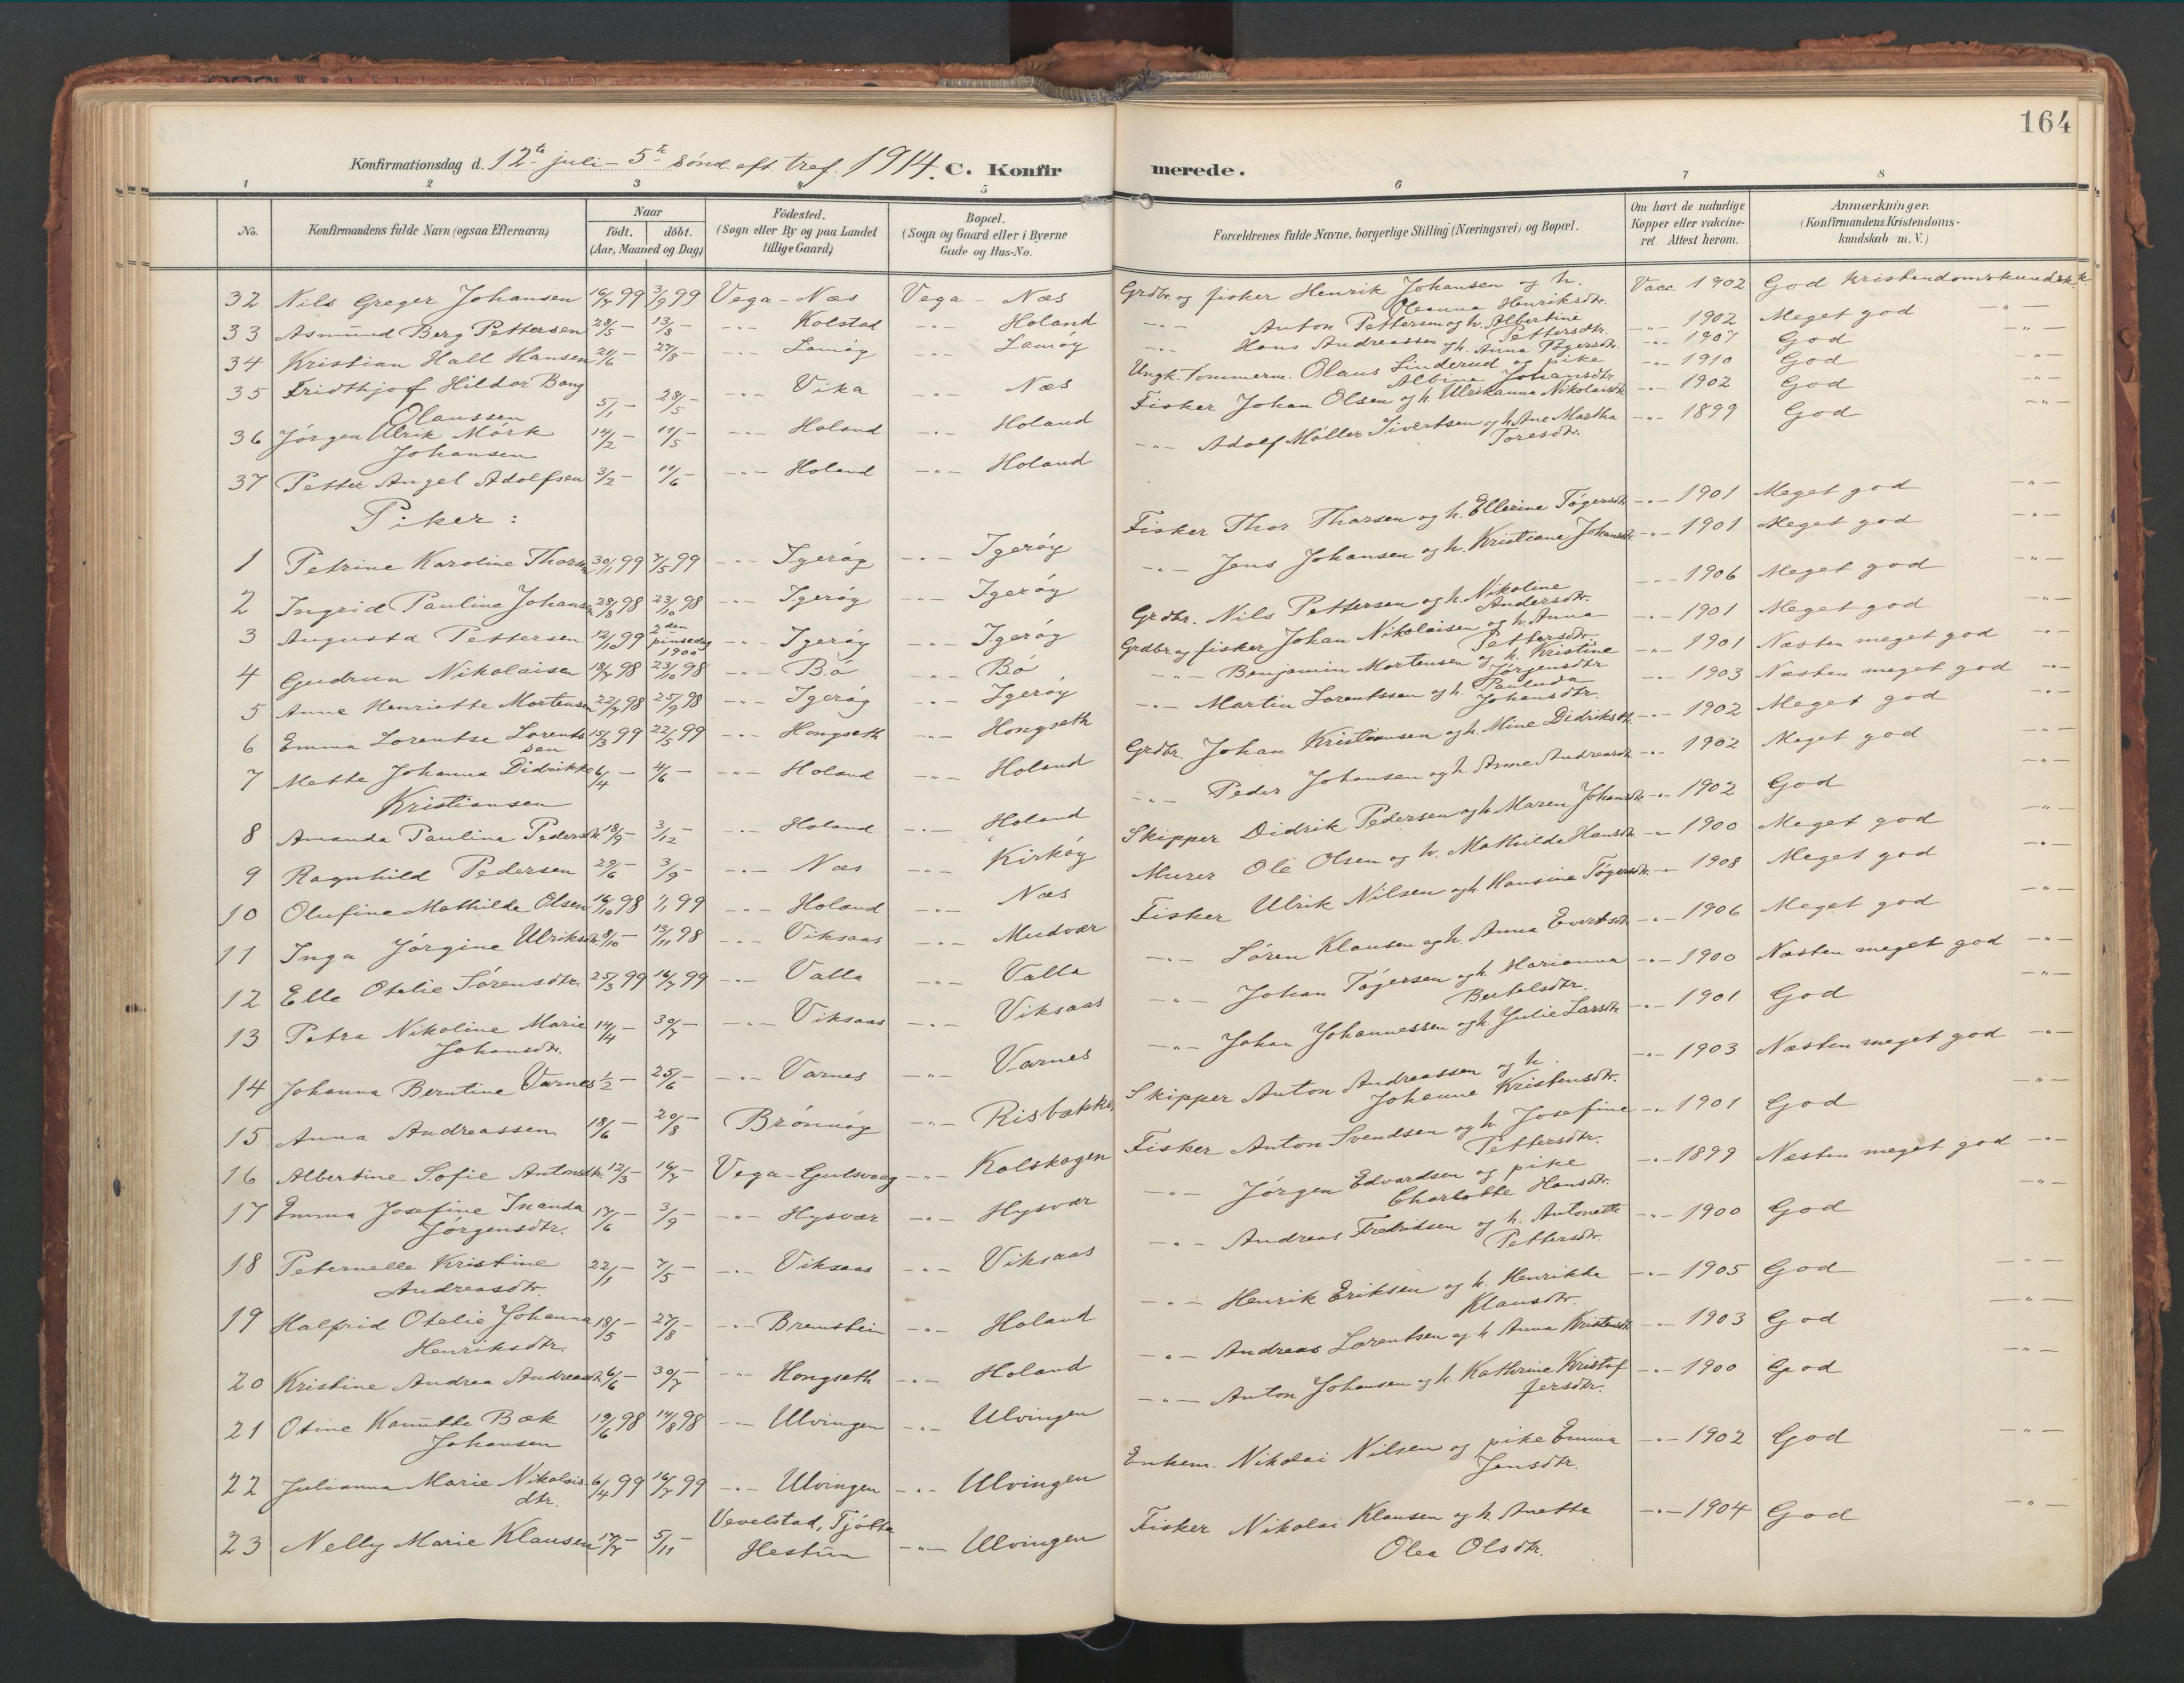 164
Konfirmationsdag d. 12te juli - 5te sönd. eft. tref. 1914. C. Konfirmerede.
1 2 3 4 5 6 7 8
No. Konfirmandens fulde Navn (ogsaa Efternavn) Naar Födt. döbt. (Aar, Maaned og Dag) Födested. (Sogn eller By og paa Landet tillige Gaard) Bopæl. (Sogn og Gaard eller i Byerne Gade og Hus-No. Forældrenes fulde Navne, borgerlige Stilling (Næringsvei) og Bopæl. Om havt de naturlige Kopper eller vakcineret. Attest herom. Anmærkninger. (Konfirmandens Kristendomskundskab m. V.)
32 Nils Greger Johansen 16/7 99 3/9 99 Vega - Næs Vega - Næs Grdbr. og fisker Henrik Johansen og h. Oleanna Henriksdtr. Vacc. 1902 God Kristendomskundsk.
33 Asmund Berg Pettersen 28/5 - 13/8 - -"- Kolstad -"- Holand -"- Anton Pettersen og h. Albertine Pettersdtr. -"- 1902 Meget god -"-
34 Kristian Hall Hansen 21/6 - 27/8 - -"- Lamøy -"- Lamøy -"- Hans Andreassen og h. Anna Tøgersdtr. -"- 1907 God -"-
35 Fridthjof Hildor Bang Olaussen 5/1 - 28/5 - -"- Vika -"- Næs Ungk. Tømmerm. Olaus Linderud og pike Albine Johansdtr. -"- 1910 God -"-
36 Jørgen Ulrik Mørk Johansen 14/2 - 11/5 - -"- Holand -"- Holand Fisker Johan Olsen og h. Ulrikanna Nikolaisdtr. -"- 1902 God -"-
37 Petter Angel Adolfsen 3/2 - 11/6 -"- Holand -"- Holand -"- Adolf Møller Sivertsen og h. Ane Martha Toresdtr. -"- 1899 God -"-
Piker:
1 Petrine Karoline Thorsen 30/1 99 7/5 99 -"- Igerøy -"- Igerøy Fisker Thor Tharsen og h. Ellerine Tøgersdtr. -"- 1901 Meget god -"-
2 Ingrid Pauline Johansen 28/8 98 23/10 98 -"- Igerøy -"- Igerøy -"- Jens Johansen og h. Kristiane Johansdtr. -"- 1901 Meget god -"-
3 Augusta Pettersen 12/10 99 2den pinsedag 1900 -"- Igerøy -"- Igerøy Grdbr. Nils Pettersen og h. Nikoline Andersdtr. -"- 1906 Meget god -"-
4 Gudrun Nikolaisen 18/7 98 23/10 98 -"- Bø -"- Bø Grdbr og fisker Johan Nikolaisen og h. Anna Pettersdtr. -"- 1901 Meget god -"-
5 Anne Henriette Mortensen 22/7 98 25/9 98 -"- Igerøy -"- Igerøy -"- Benjamin Mortensen og h. Kristine Jørgensdtr -"- 1901 Næsten meget god -"-
6 Emma Lorentse Lorentssen 15/3 99 22/5 99 -"- Hongseth -"- Hongseth -"- Martin Lorentssen og h. Paulida Johansdtr. -"- 1903 Næsten meget god -"-
7 Mette Johanna Didrikke Kristiansen 6/4 - 4/6 - -"- Holand -"- Holand Grdbr. Johan Kristiansen og h. Mine Didriksdtr. -"- 1902 Meget god -"-
8 Amanda Pauline Pedersdtr 18/9 - 3/12 - -"- Holand -"- Holand -"- Peder Johansen og h. Anne Andreasdtr. -"- 1902 Meget god -"-
9 Ragnhild Pedersen 29/6 - 3/9 - -"- Næs -"- Kirkøy Skipper Didrik Pedersen og h. Maren Johansdtr. -"- 1902 God -"-
10 Olufine Mathilde Olsen 16/10 98 1/1 99 -"- Holand -"- Næs Murer Ole Olsen og h. Mathilde Hansdtr. -"- 1900 Meget god -"-
11 Inga Jørgine Ulriksdtr. 8/10 - 13/11 98 -"- Viksaas -"- Mudvær Fisker Ulrik Nilsen og h. Hansine Tøgersdtr. -"- 1908 Meget god -"-
12 Elle Otelie Sørensdtr. 25/3 99 16/7 99 -"- Valla -"- Valla -"- Søren Klausen og h. Anna Evertsdtr -"- 1906 Meget god -"-
13 Petra Nikoline Marie Johansdtr. 14/4 - 30/7 - -"- Viksaas -"- Viksaas -"- Johan Tøgersen og h. Marianna Bertelsdtr. -"- 1900 Næsten meget god -"-
14 Johanna Berntine Varnes 1/2 - 25/6 - -"- Varnes -"- Varnes -"- Johan Johannessen og h. Julie Larsdtr -"- 1901 God -"-
15 Anna Andreassen 18/6 - 20/8 - Brønnøy -"- Risbakken Skipper Anton Andreassen og h. Johanne Kristensdtr. -"- 1903 Næsten meget god -"-
16 Albertine Sofie Antonsdtr. 12/3 - 16/7 - Vega - Gulsvaag -"- Kolskogen Fisker Anton Svendsen og h. Josefine Pettersdtr. -"- 1901 God -"-
17 Emma Josefine Inanda Jørgensdtr. 17/6 - 3/9 - -"- Hysvær -"- Hysvær -"- Jørgen Edvardsen og pike Charlotte Hansdtr. -"- 1899 Næsten meget god -"-
18 Peternelle Kristine Andreasdtr. 22/1 - 7/5 - -"- Viksaas -"- Viksaas -"- Andreas Fredriksen og h. Antonette Pettersdtr. -"- 1900 God -"-
19 Halfrid Otelie Johanna Henriksdtr. 18/5 - 27/8 - -"- Bremstein -"- Holand -"- Henrik Eriksen og h. Henrikke Klausdtr. -"- 1905 God -"-
20 Kristine Andrea Andreasdtr 6/6 - 30/7 - -"- Hongseth -"- Holand -"- Andreas Lorentsen og h. Anna Kristensdtr -"- 1903 God -"-
21 Otine Kanutte Bæk Johansen 19/6 98 14/8 98 -"- Ulvingen -"- Ulvingen -"- Anton Johansen og h. Kathrine Kristofersdtr. -"- 1900 God -"-
22 Julianna Marie Nikolaisdtr. 6/4 99 16/7 99 -"- Ulvingen -"- Ulvingen Enkem. Nikolai Nilsen og pike Emma Jensdtr. -"- 1902 God -"-
23 Nelly Marie Klausen 17/7 - 5/11 - Vevelstad, Tjøtta Hestun -"- Ulvingen Fisker Nikolai Klausen og h. Anette Olea Olsdtr. -"- 1904 God -"-